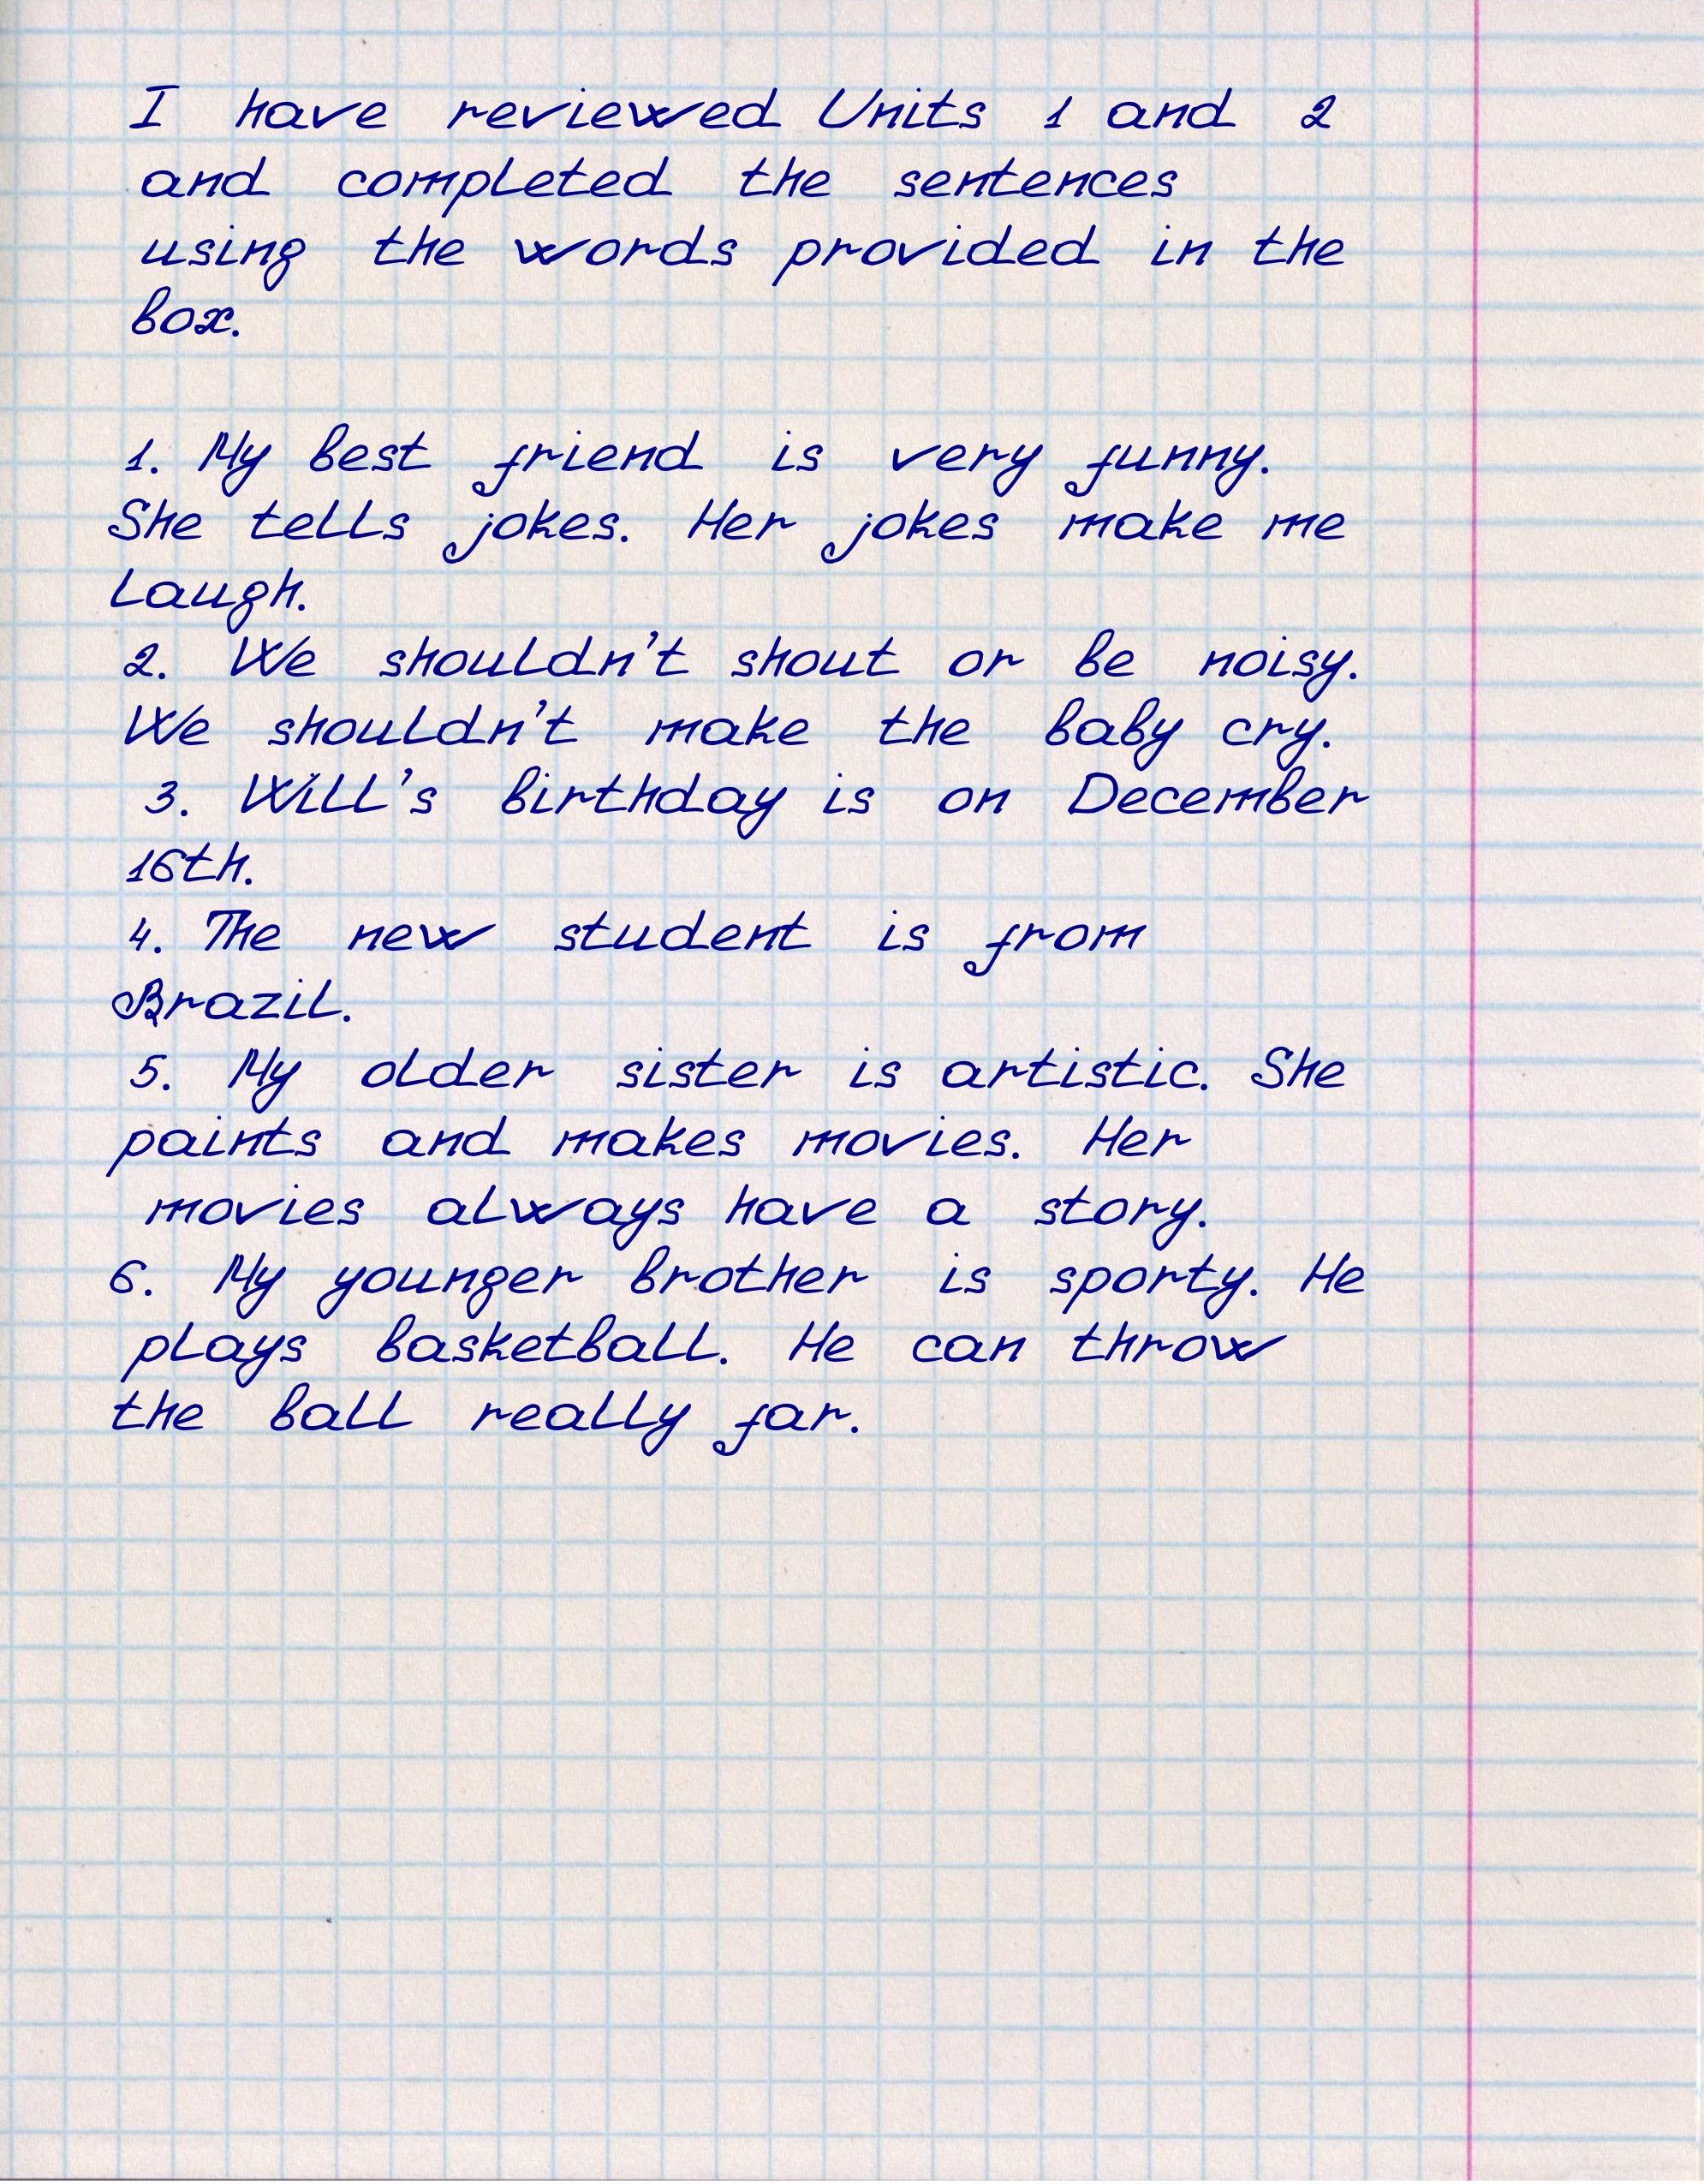 I have reviewed Units 1 and 2
and completed the sentences
using the words provided in the
box.
1. My best friend is very funny.
She tells jokes. Her jokes make me
laugh.
2. We shouldn't shout or be noisy.
We shouldn't make the baby cry.
3. Will's birthday is on December
16th.
4. The new student is from
Brazil.
5. My older sister is artistic. She
paints and makes movies. Her
movies always have a story.
6. My younger brother is sporty. He
plays basketball. He can throw
the ball really far.